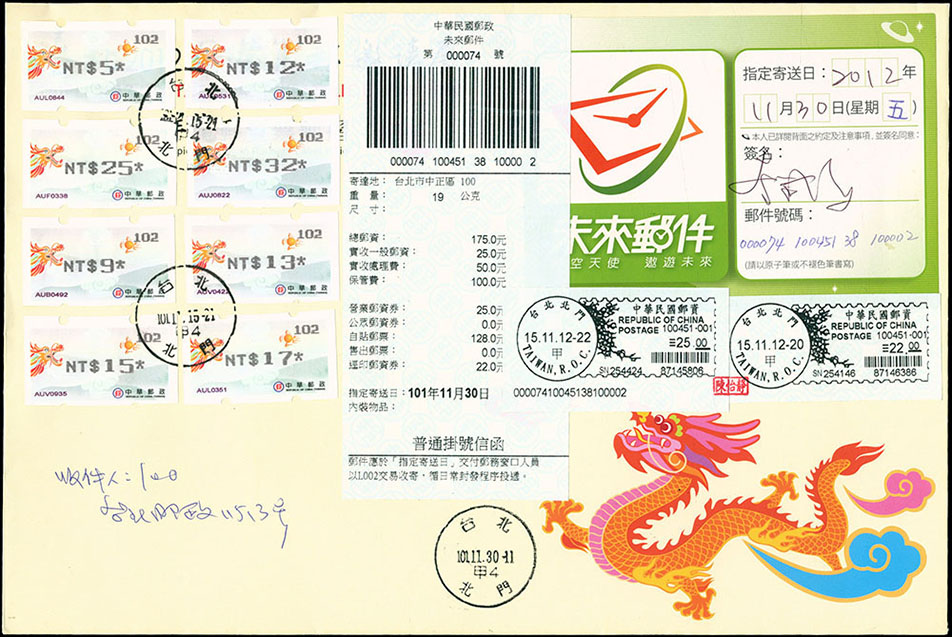 102
NT$5*
AUL0844
中華郵政
102
NT$12*
中華郵政
102
NT$25*
AUF0338
中華郵政
102
NT$32*
AUJ0822
中華郵政
102
NT$9*
AUB0492
中華郵政
102
NT$13*
AUV0422
中華郵政
102
NT$15*
AUV0935
中華郵政
102
NT$17*
AUL0351
中華郵政
台北
15-21
甲4
北門
台北
101.11.15-21
甲4
北門
中華民國郵政
未來郵件
第 000074 號
000074 100451 38 10000 2
寄達地: 台北市中正區 100
重量: 19 公克
尺寸:
總郵資: 175.0元
實收一般郵資: 25.0元
實收處理費: 50.0元
保管費: 100.0元
營業郵資券: 25.0元
公眾郵資券: 0.0元
自貼郵票: 128.0元
售出郵票: 0.0元
經印郵資券: 22.0元
指定寄送日:101年11月30日 00007410045138100002
內裝物品:
普通掛號信函
郵件應於「指定寄送日」交付郵務窗口人員
以L002交易收寄,循日常封發程序投遞。
未來郵件
空天使 遨遊未來
指定寄送日:2012年
11月30日(星期五)
本人已詳閱背面之約定及注意事項,並簽名同意:
簽名:
郵件號碼:
000074 100451 38 100002
(請以原子筆或不褪色筆書寫)
台北北門
15.11.12-22
甲
TAIWAN, R.O.C.
中華民國郵資
REPUBLIC OF CHINA
POSTAGE 100451-001
=25.00
SN254424 87145806
台北北門
15.11.12-20
甲
TAIWAN, R.O.C.
中華民國郵資
REPUBLIC OF CHINA
POSTAGE 100451-001
=22.00
SN254146 87146386
陳怡靜
收件人:100
台北郵政11513号
台北
101.11.30-11
甲4
北門